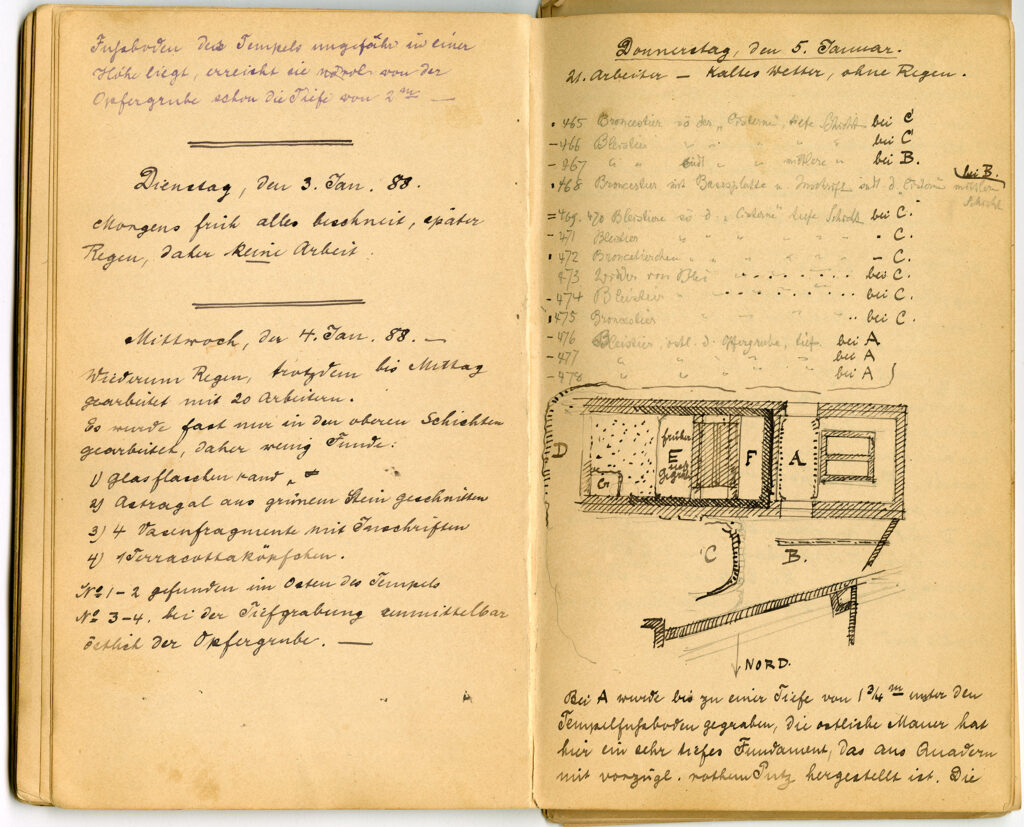 Fussboden des Tempels ungefähr in einer
Höhe liegt, erreicht sie nördl. von der
Opfergrube schon die Tiefe von 2 m —
Dienstag, den 3. Jan. 88.
Morgens früh alles beschneit, später
Regen, daher keine Arbeit.
Mittwoch, der 4. Jan. 88. —
Wiederum Regen, trotzdem bis Mittag
gearbeitet mit 20 Arbeitern.
Es wurde fast nur in den oberen Schichten
gearbeitet, daher wenig Funde:
1) Glasflaschenrand
2) Astragal aus grünem Stein geschnitten
3) 4 Vasenfragmente mit Inschriften
4) 1 Terracottaköpfchen.
No 1–2 gefunden im Osten des Tempels
No 3–4. bei der Tiefgrabung unmittelbar
östlich der Opfergrube. —
Donnerstag, den 5. Januar.
21. Arbeiter – Kaltes Wetter, ohne Regen.
• 465 Broncestier sö der „Cisterne", tiefe Schicht bei C
– 466 Bleistier " " " " bei C
– 467 " " südl " " mittlere " bei B.
• 468 Broncestier mit Basisplatte u. Inschrift südl d. Cistern mittlere Schicht bei B.
= 469. 470 Bleistiere sö d. „Cisterne" tiefe Schicht bei C.
– 471 Bleistier " " " " " " C.
• 472 Broncestierchen " " " " " – C.
473 Widder von Blei bei C.
– 474 Bleistier bei C.
• 475 Broncestier bei C.
– 476 Bleistier, östl. d. Opfergrube, tief. bei A
– 477 " " " " bei A
– 478 " " " " bei A
D
G
früher
E
F
A
C
B.
NORD.
Bei A wurde bis zu einer Tiefe von 1 3/4 m unter den
Tempelfussboden gegraben, die östliche Mauer hat
hier ein sehr tiefes Fundament, das aus Quadern
mit vorzügl. rothem Putz hergestellt ist. Die